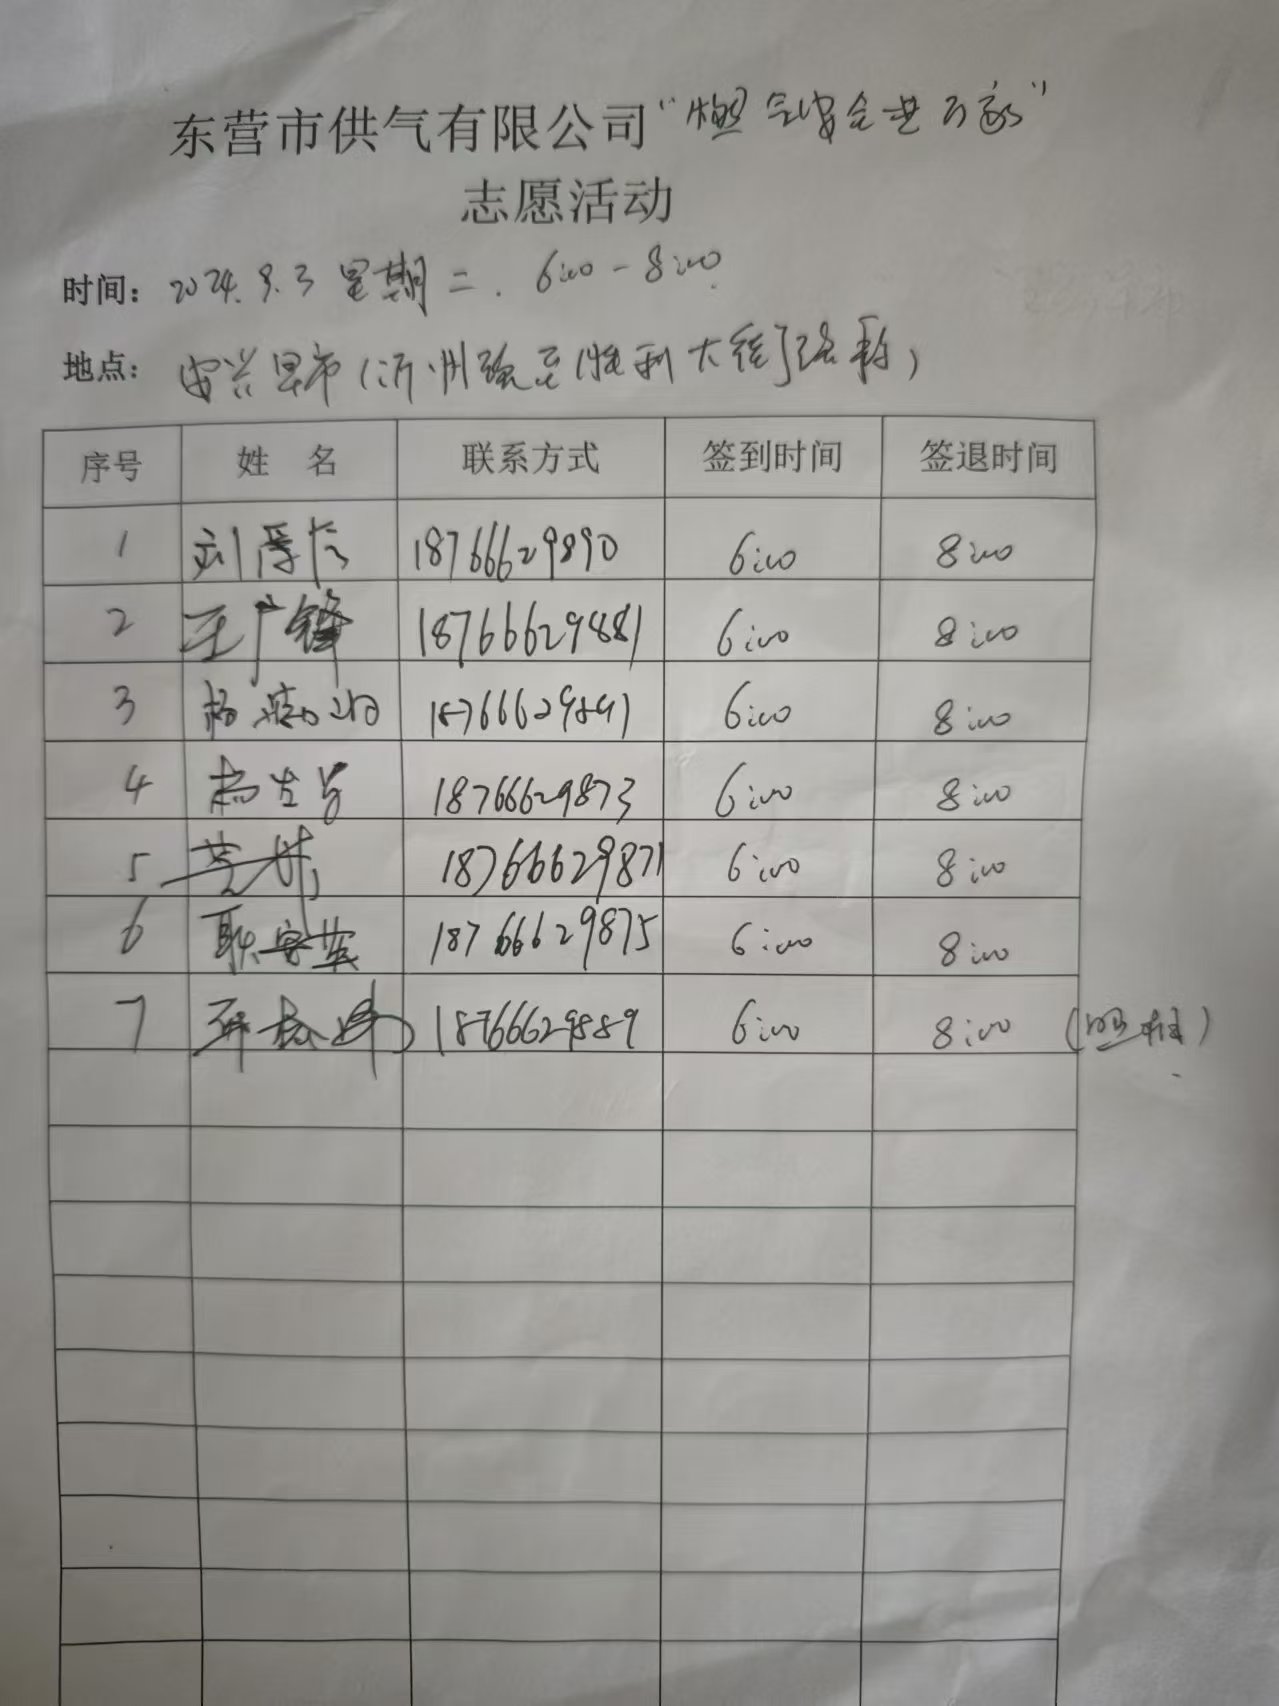 东营市供气有限公司“燃气安全进万家”
志愿活动
时间：2024.9.3 星期二. 6:00-8:00
地点：安兴早市（沂州路至胜利大街路段）
序号 姓名 联系方式 签到时间 签退时间
1 刘 18766629890 6:00 8:00
2 王广锋 18766629881 6:00 8:00
3 杨 18766629891 6:00 8:00
4 杨 18766629873 6:00 8:00
5 18766629871 6:00 8:00
6 耿安英 18766629875 6:00 8:00
7 18766629889 6:00 8:00 （照相）